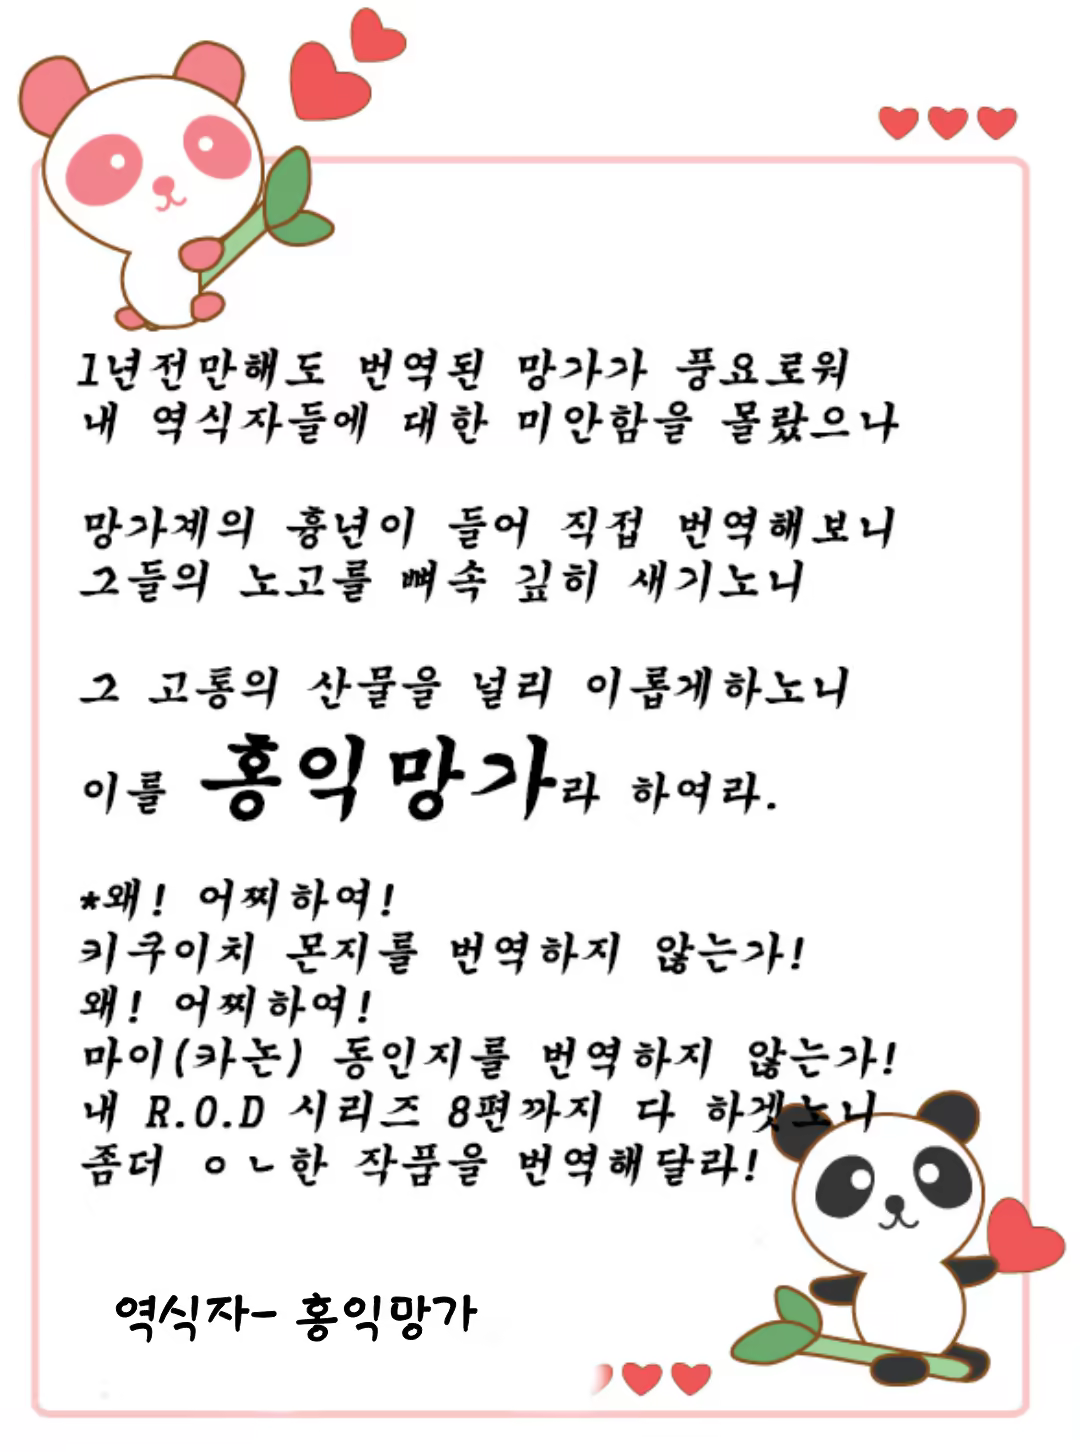 1년전만해도 번역된 망가가 풍요로워
내 역식자들에 대한 미안함을 몰랐으나
망가계의 흉년이 들어 직접 번역해보니
그들의 노고를 뼈속 깊히 새기노니
그 고통의 산물을 널리 이롭게하노니
이를 홍익망가라 하여라.
*왜! 어찌하여!
키쿠이치 몬지를 번역하지 않는가!
왜! 어찌하여!
마이(카논) 동인지를 번역하지 않는가!
내 R.O.D 시리즈 8편까지 다 하겟노니
좀더 ㅇㄴ한 작품을 번역해달라!
역식자- 홍익망가